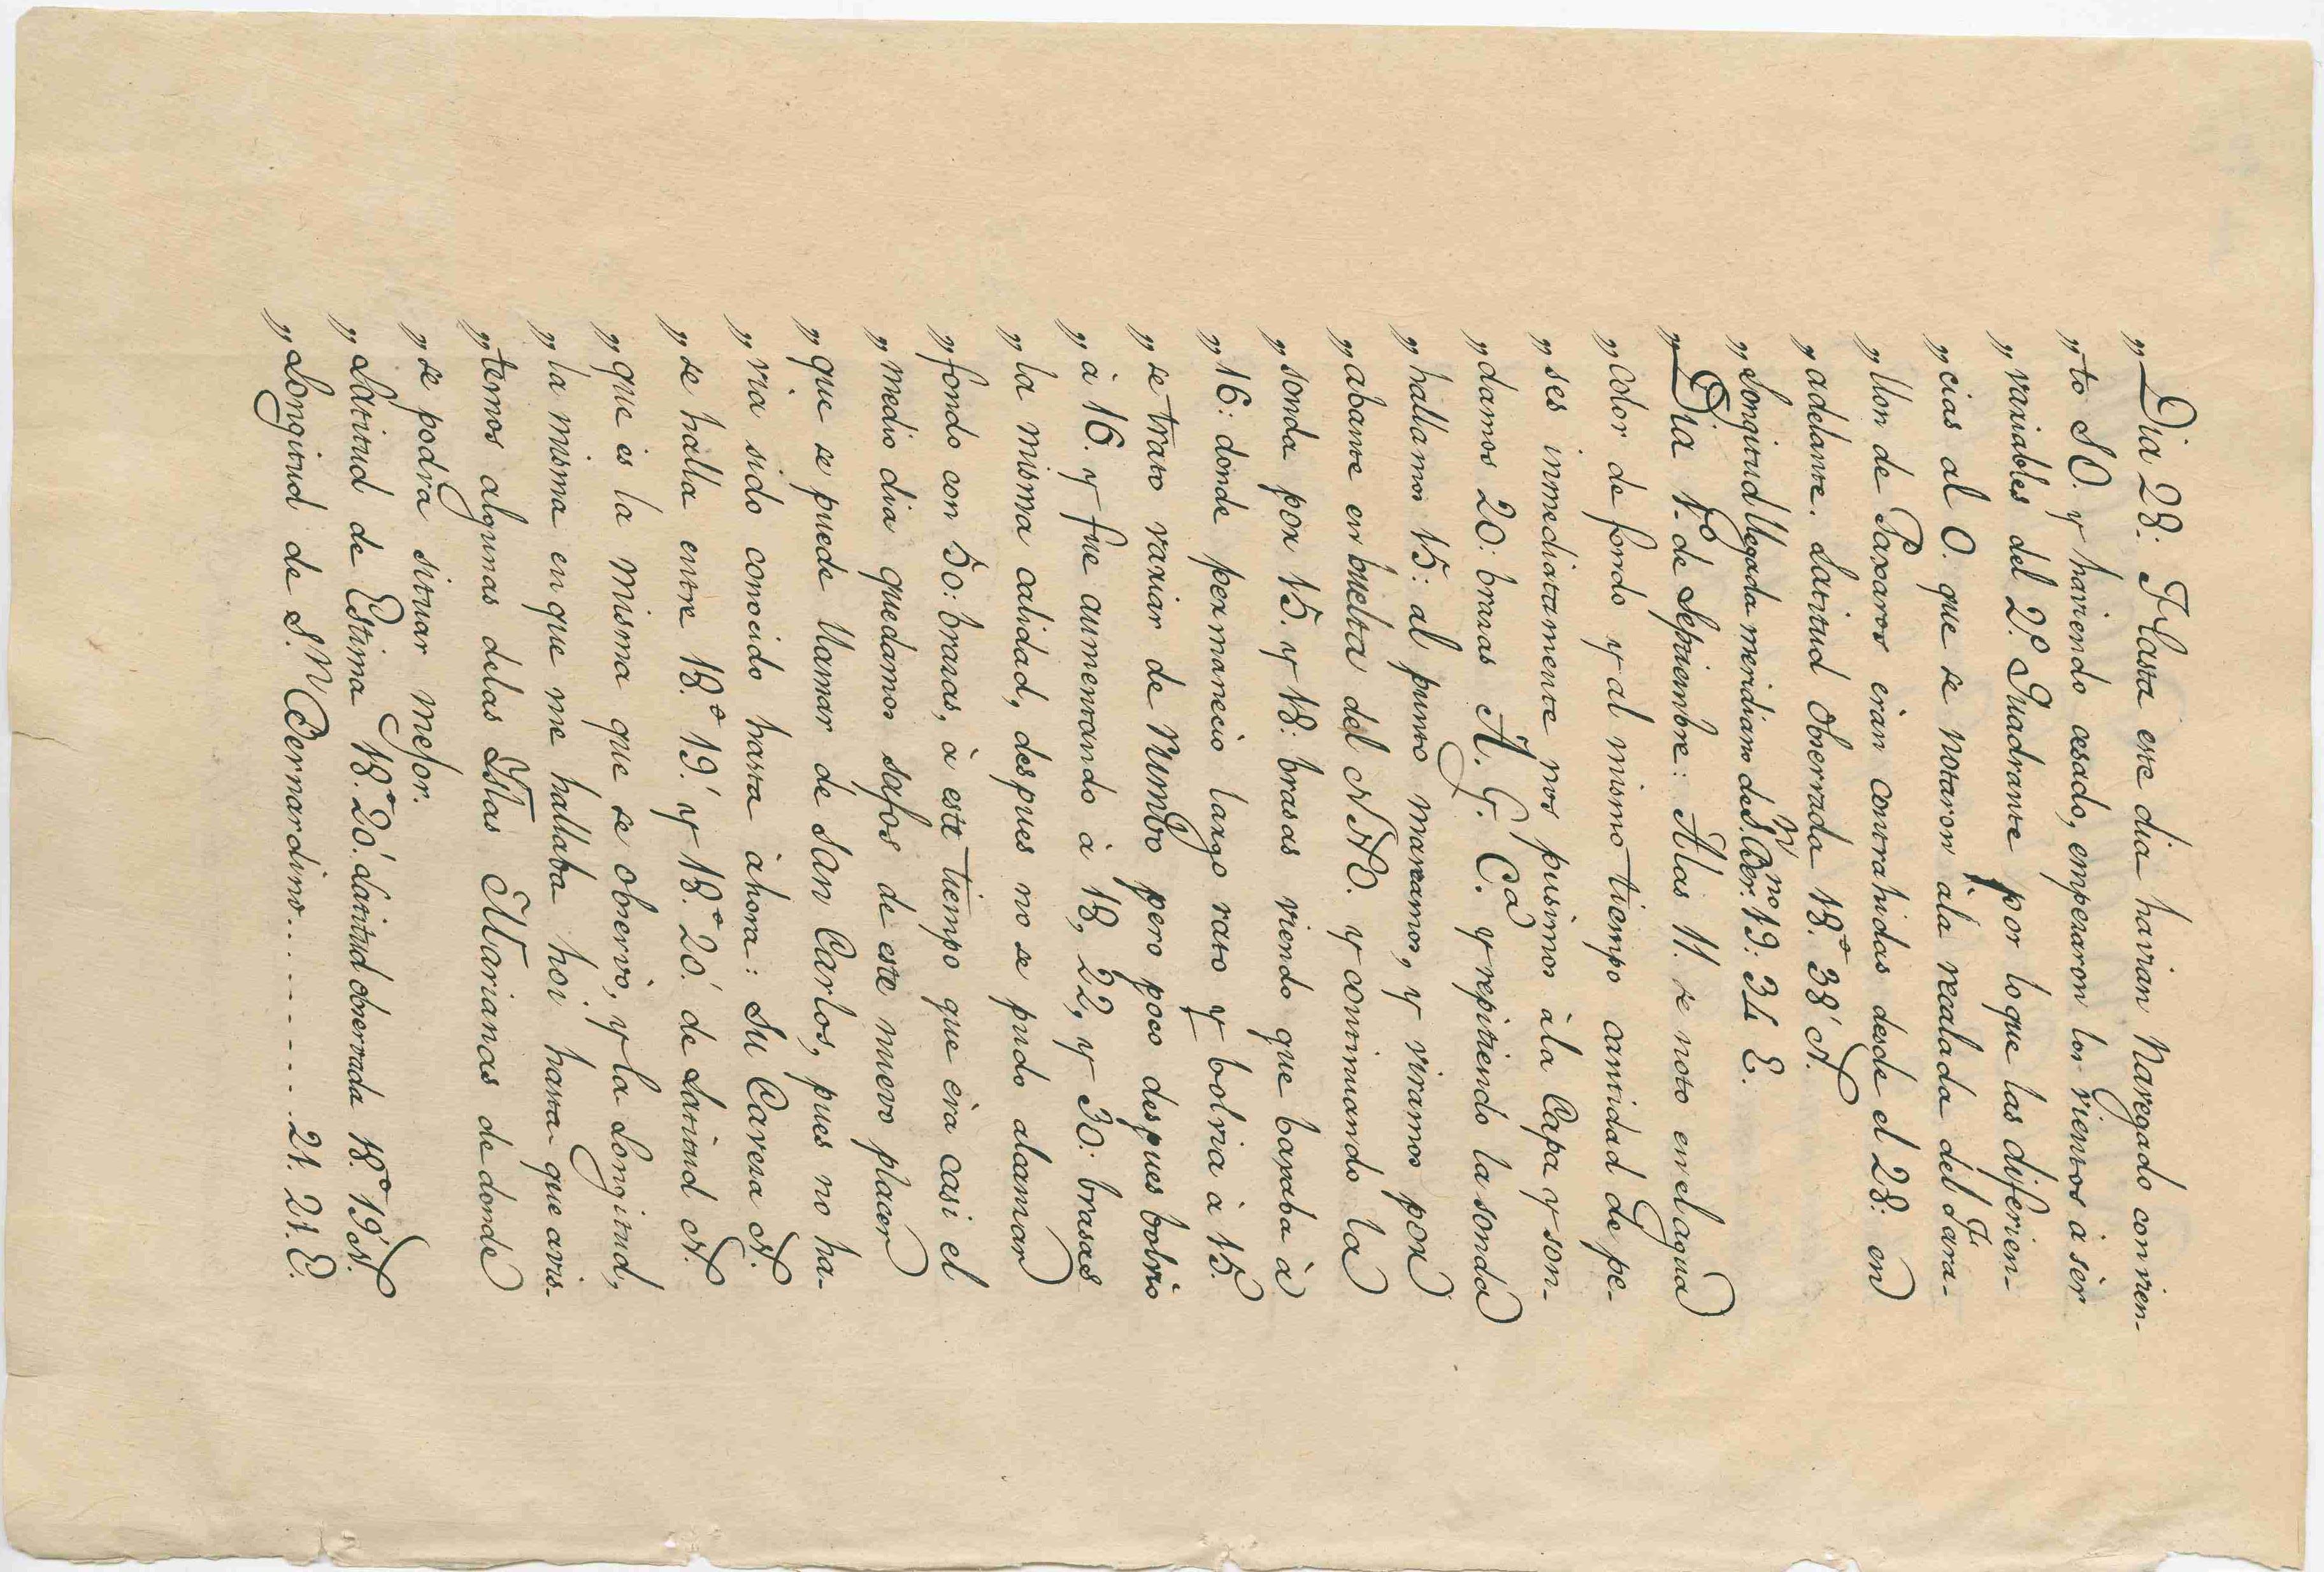 „Dia 28: Hasta este dia havian Navegado con vien-
„to SO. y haviendo cesado, empezaron los vientos à sèr
„variables del 2.º Quadrante por lo que las diferien-
„cias al O. que se notaron àla recalada del Fara-
„llon de Paxaros eràn contrahidas desde el 28: en
„adelante. Latitud Observada 18.º 38' N.
„Longitud llegada meridiano de S. Ber.no 19: 34 E.
„Dia 1.º de Septiembre: Alas 11. se noto en el agua
„color de fondo y al mismo tiempo cantidad de pe-
„ses inmediatamente nos pusimos àla Capa y son-
„damos 20: brasas A. G. Ca y repitiendo la sonda
„hallamos 15: al punto mareamos, y viramos por
„abante en buelta del NNE. y continuando la
„sonda por 15. y 18: brasas viendo que baxaba à
„16: donde permanecio largo rato y bolvia à 15.
„se trato variar de Rumbo pero poco despues bolvio
„à 16. y fue aumentando à 18, 22, y 30: brasas
„la misma calidad, despues no se pudo alcanzar
„fondo con 50: brazas, à este tiempo que èra casi el
„medio dia quedamos safos de este nuevo placer
„que se puede llamar de San Carlos, pues no ha-
„via sido conocido hasta àhora: Su Caveza N.
„se hàlla entre 18.º 19.' y 18.º 20.' de Latitud N.
„que es la misma que se observò, y la Longitud,
„la misma en que me hallaba hoi hasta que avis-
„temos algunas delas Yslas Marianas de donde
„se podrà situar mejor.
„Latitud de Estima 18.º 20.' Latitud observada 18.º 19' N.
„Longitud de S.n Bernardino.......... 21. 21. E.